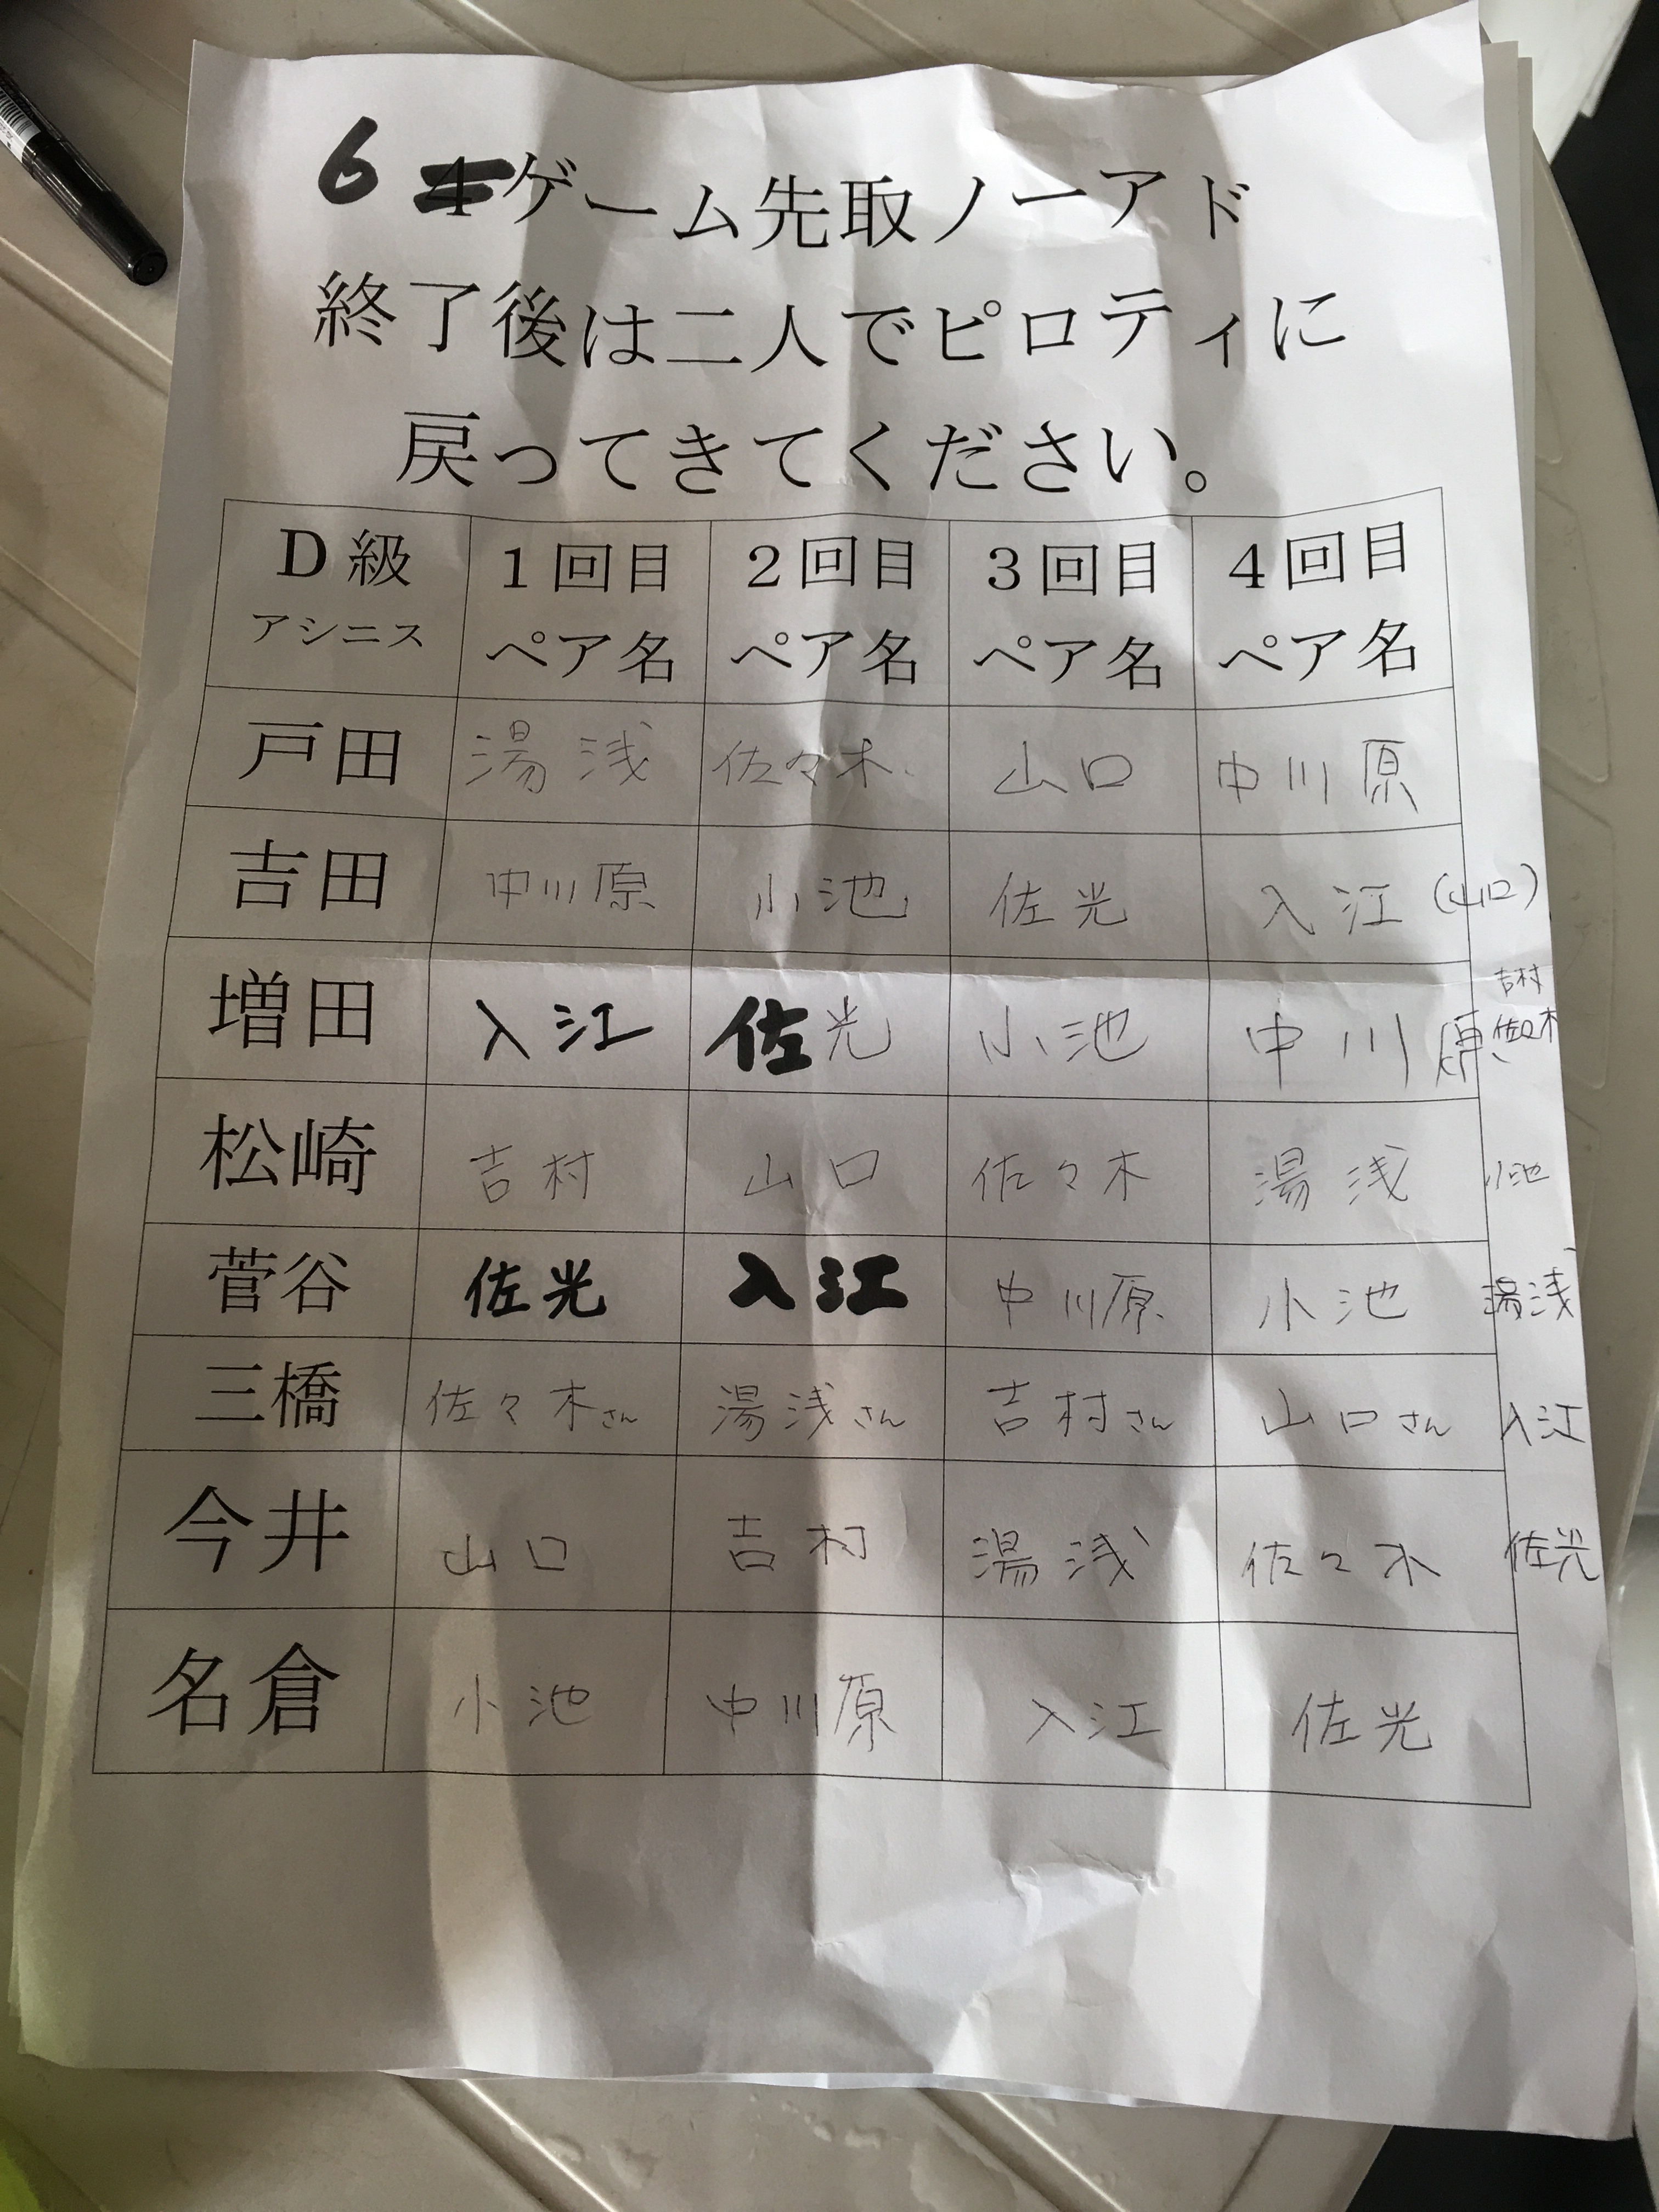 6 4ゲーム先取ノーアド
終了後は二人でピロティに
戻ってきてください。
D級 アシニス 1回目 ペア名 2回目 ペア名 3回目 ペア名 4回目 ペア名
戸田 湯浅 佐々木 山口 中川原
吉田 中川原 小池 佐光 入江 (山口)
吉村
増田 入江 佐光 小池 中川原 佐々木
松崎 吉村 山口 佐々木 湯浅 小池
菅谷 佐光 入江 中川原 小池 湯浅
三橋 佐々木さん 湯浅さん 吉村さん 山口さん 入江
今井 山口 吉村 湯浅 佐々木 佐光
名倉 小池 中川原 入江 佐光